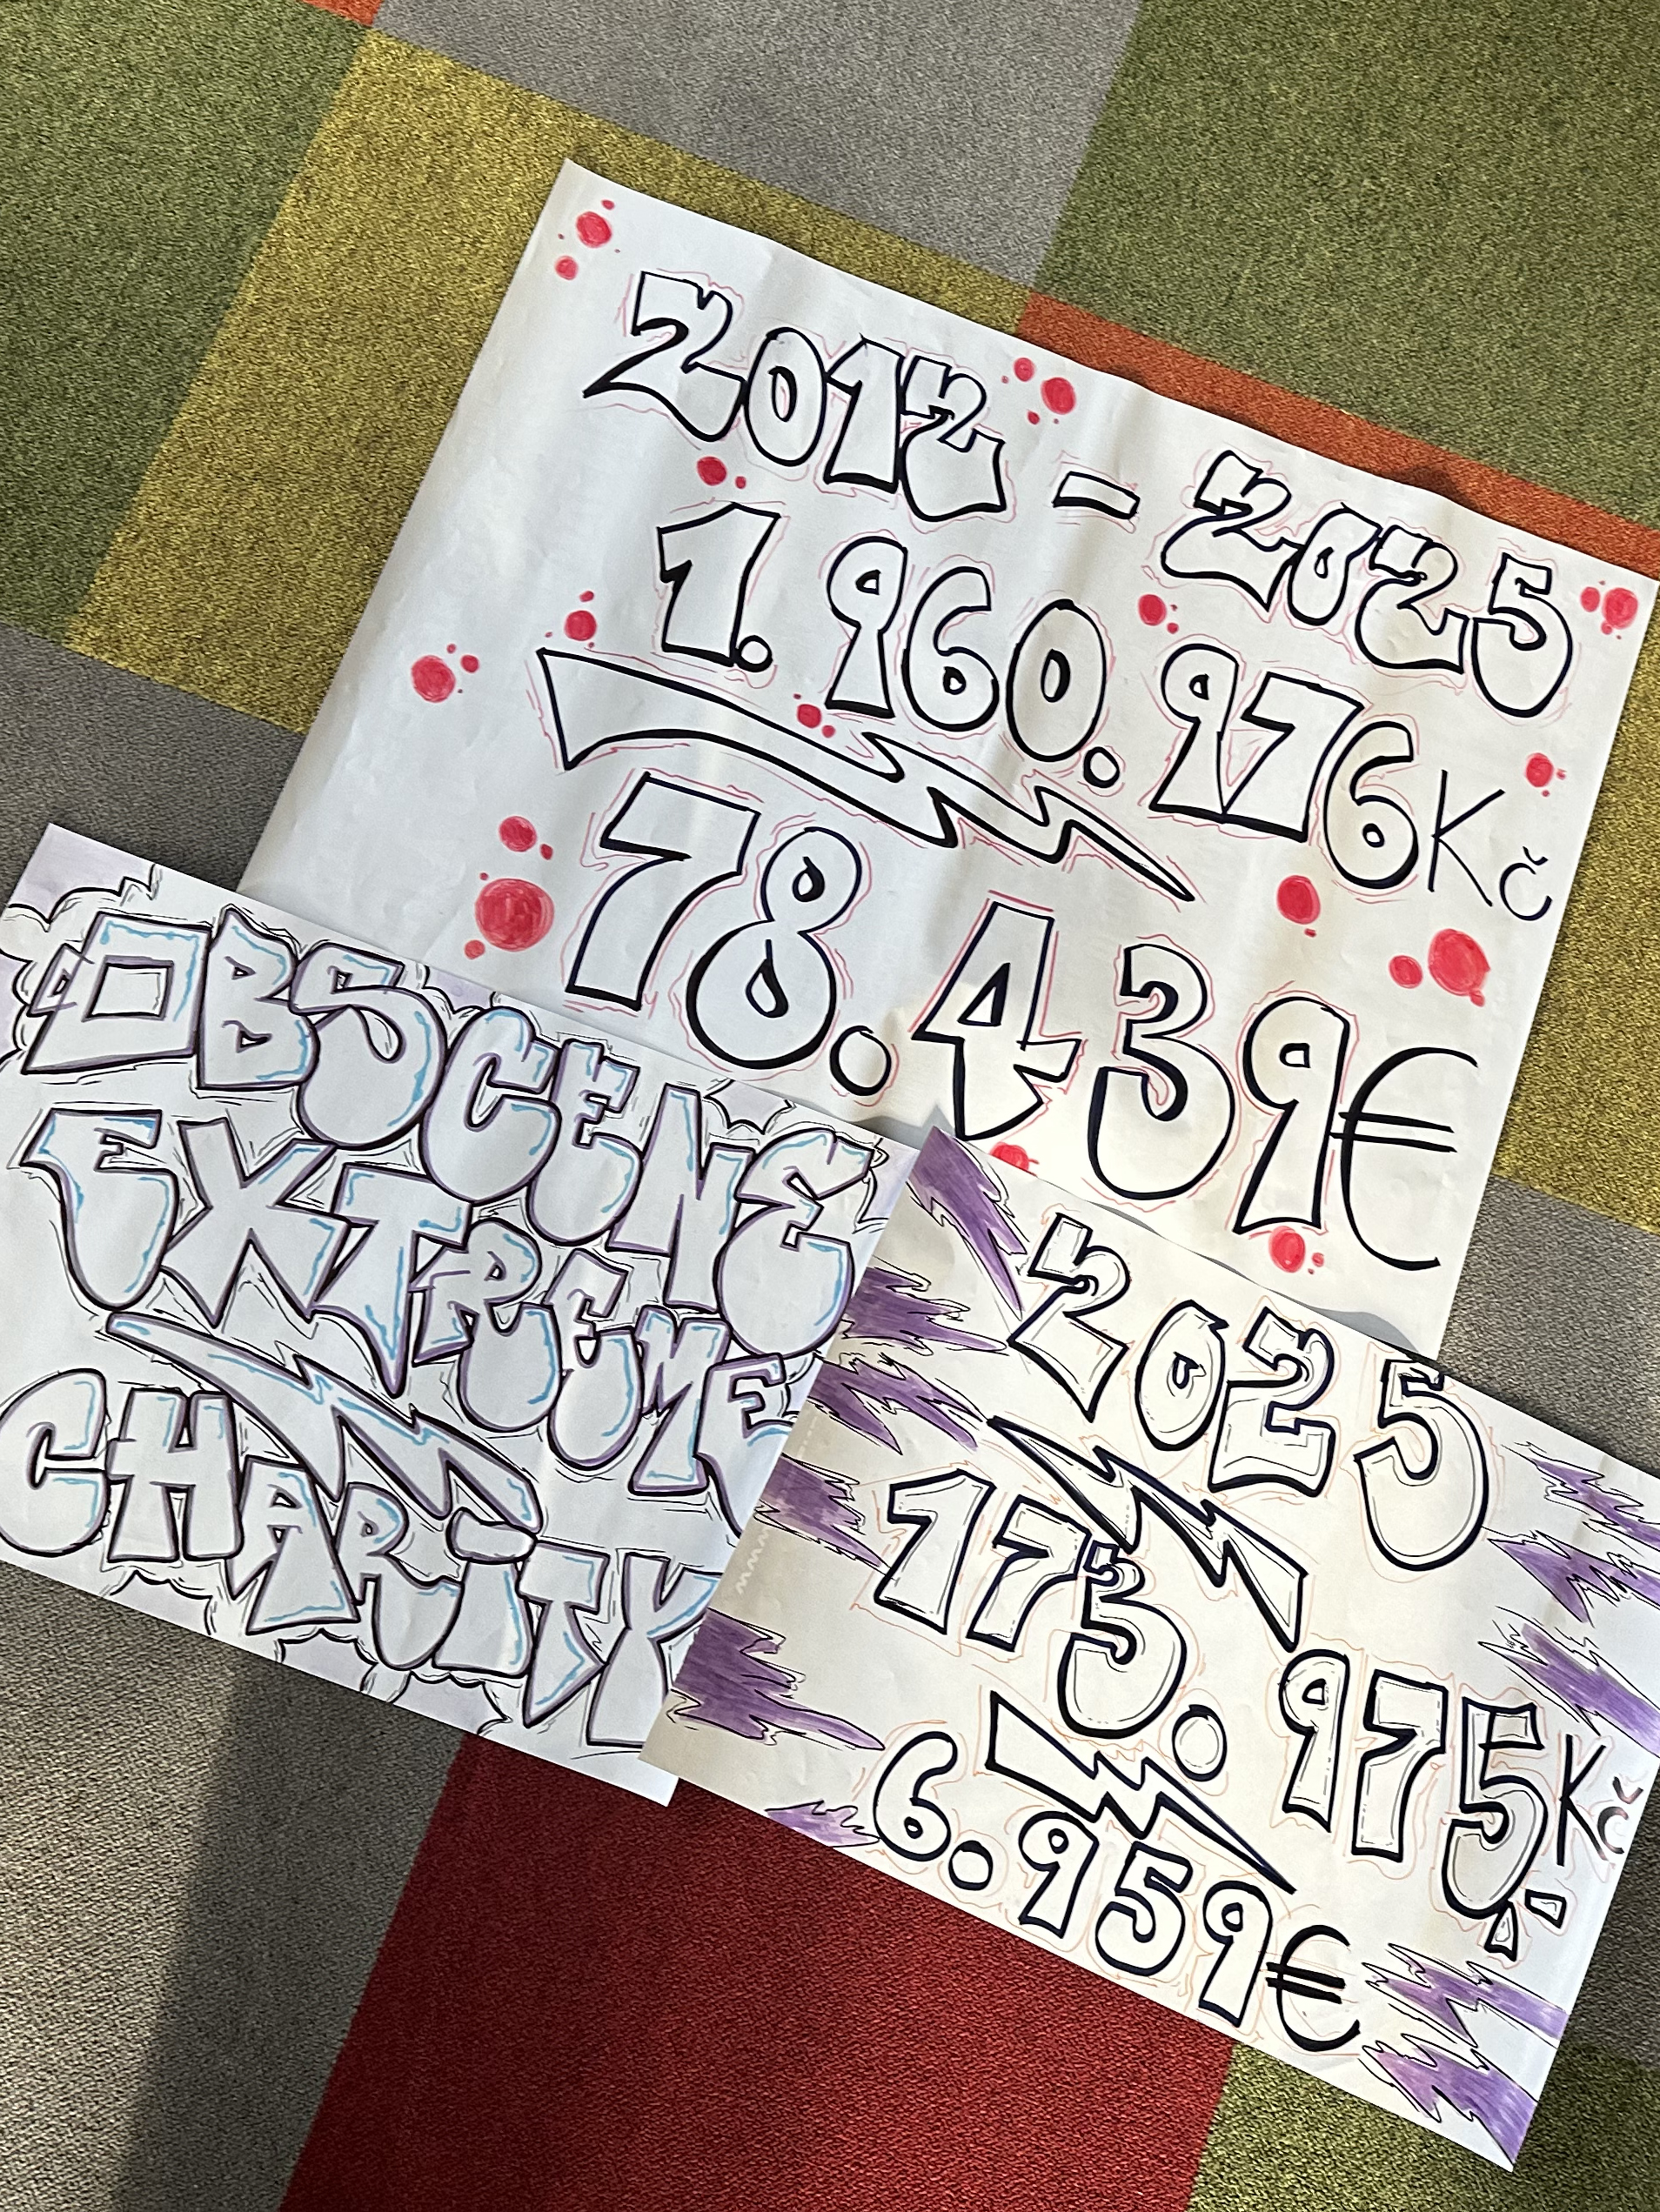 2012 - 2025
1.960.976Kč
78.439€
OBSCENE
EXTREME
CHARiTY
2025
173.975Kč
6.959€